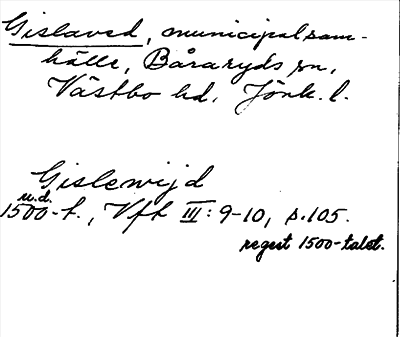 Gislaved, municipalsam-
hälle, Båraryds sn,
Västbo hd, Jönk. l.
Gislewijd
u.d.
1500-t., Vft III: 9-10, s. 105.
regest 1500-talet.